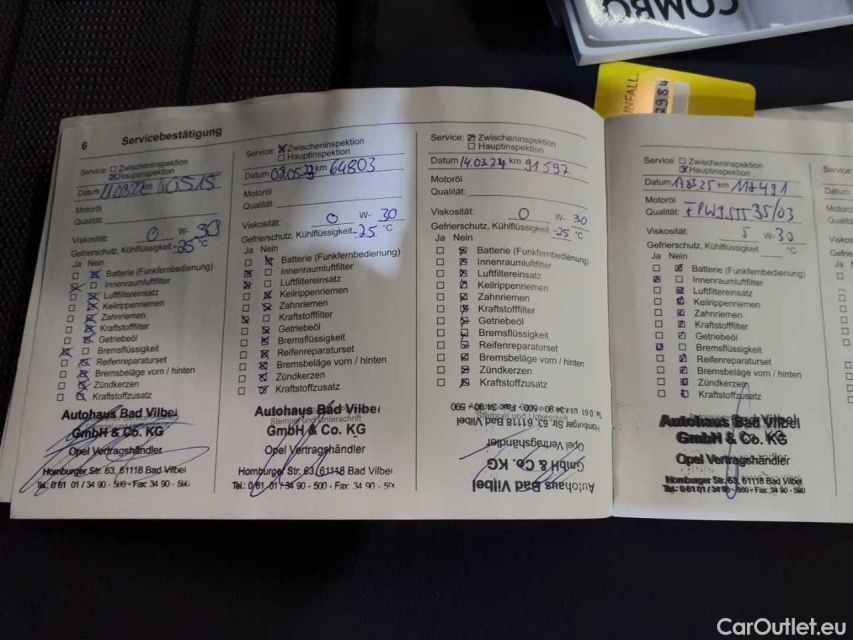 COMBO
6 Servicebestätigung
Service: ☐ Zwischeninspektion
☒ Hauptinspektion
Datum 11.08.22 km 40515
Motoröl
Qualität:
Viskosität: 0 W- 30
Gefrierschutz, Kühlflüssigkeit -25 °C
Ja Nein
Batterie (Funkfernbedienung)
Innenraumluftfilter
Luftfiltereinsatz
Keilrippenriemen
Zahnriemen
Kraftstofffilter
Getriebeöl
Bremsflüssigkeit
Reifenreparaturset
Bremsbeläge vorn / hinten
Zündkerzen
Kraftstoffzusatz
Autohaus Bad Vilbel
GmbH & Co. KG
Opel Vertragshändler
Homburger Str. 63, 61118 Bad Vilbel
Tel.: 0 61 01 / 34 90 - 500 • Fax: 34 90 - 590
Service: ☒ Zwischeninspektion
☐ Hauptinspektion
Datum km 64803
Motoröl
Qualität:
Viskosität: 0 W- 30
Gefrierschutz, Kühlflüssigkeit -25 °C
Ja Nein
Batterie (Funkfernbedienung)
Innenraumluftfilter
Luftfiltereinsatz
Keilrippenriemen
Zahnriemen
Kraftstofffilter
Getriebeöl
Bremsflüssigkeit
Reifenreparaturset
Bremsbeläge vorn / hinten
Zündkerzen
Kraftstoffzusatz
Autohaus Bad Vilbel
Stempel und Unterschrift
GmbH & Co. KG
Opel Vertragshändler
Homburger Str. 63, 61118 Bad Vilbel
Tel.: 0 61 01 / 34 90 - 500 • Fax 34 90 - 590
Service: ☒ Zwischeninspektion
☐ Hauptinspektion
Datum 14.03.24 km 91597
Motoröl
Qualität:
Viskosität: 0 W- 30
Gefrierschutz, Kühlflüssigkeit -25 °C
Ja Nein
Batterie (Funkfernbedienung)
Innenraumluftfilter
Luftfiltereinsatz
Keilrippenriemen
Zahnriemen
Kraftstofffilter
Getriebeöl
Bremsflüssigkeit
Reifenreparaturset
Bremsbeläge vorn / hinten
Zündkerzen
Kraftstoffzusatz
Stempel und Unterschrift
Autohaus Bad Vilbel
GmbH & Co. KG
Opel Vertragshändler
Homburger Str. 63, 61118 Bad Vilbel
Service: ☐ Zwischeninspektion
☒ Hauptinspektion
Datum km 117491
Motoröl
Qualität:
Viskosität: 5 W- 30
Gefrierschutz, Kühlflüssigkeit °C
Ja Nein
Batterie (Funkfernbedienung)
Innenraumluftfilter
Luftfiltereinsatz
Keilrippenriemen
Zahnriemen
Kraftstofffilter
Getriebeöl
Bremsflüssigkeit
Reifenreparaturset
Bremsbeläge vorn / hinten
Zündkerzen
Kraftstoffzusatz
Autohaus Bad Vilbel
GmbH & Co. KG
Opel Vertragshändler
Homburger Str. 63, 61118 Bad Vilbel
Tel.: 0 61 01 / 34 90 - 500 • Fax: 34 90 - 590
CarOutlet.eu